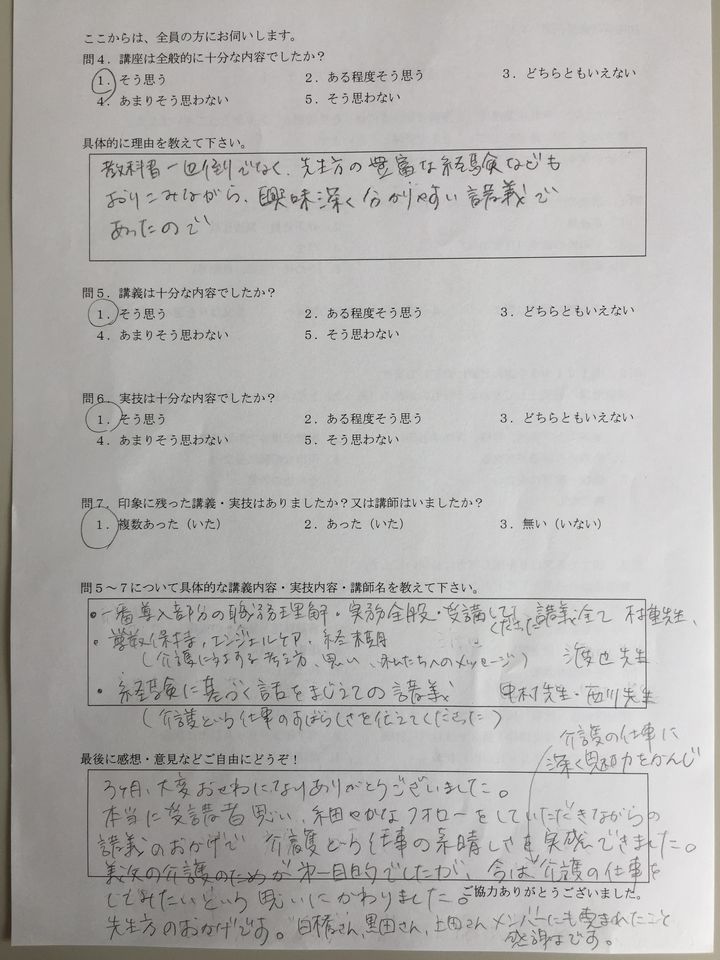 ここからは、全員の方にお伺いします。
問4．講座は全般的に十分な内容でしたか？
1．そう思う 2．ある程度そう思う 3．どちらともいえない
4．あまりそう思わない 5．そう思わない
具体的に理由を教えて下さい。
教科書一辺倒でなく、先生方の豊富な経験なども
おりこみながら、興味深く分かりやすい講義で
あったので
問5．講義は十分な内容でしたか？
1．そう思う 2．ある程度そう思う 3．どちらともいえない
4．あまりそう思わない 5．そう思わない
問6．実技は十分な内容でしたか？
1．そう思う 2．ある程度そう思う 3．どちらともいえない
4．あまりそう思わない 5．そう思わない
問7．印象に残った講義・実技はありましたか？又は講師はいましたか？
1．複数あった（いた） 2．あった（いた） 3．無い（いない）
問5～7について具体的な講義内容・実技内容・講師名を教えて下さい。
・一番導入部分の職務理解・実務全般・受講して 講義全て 先生、
・尊厳保持、エンジェルケア、
（介護に対する考え方、思い、私たちへのメッセージ） 渡辺先生
・経験に基づく話をまじえての講義 中村先生・西川先生
（介護という仕事のすばらしさを伝えてくださった）
最後に感想・意見などご自由にどうぞ！
介護の仕事に
深く魅力をかんじ
3ヶ月、大変おせわになりありがとうございました。
本当に受講者思い、細やかなフォローをしていただきながらの
講義のおかげで 介護という仕事の素晴しさを実感できました。
義父の介護のためが第一目的でしたが、今は 介護の仕事を
してみたいという思いにかわりました。
ご協力ありがとうございました。
先生方のおかげです。白橋さん、黒田さん、上田さん メンバーにも恵まれたこと
感謝です。